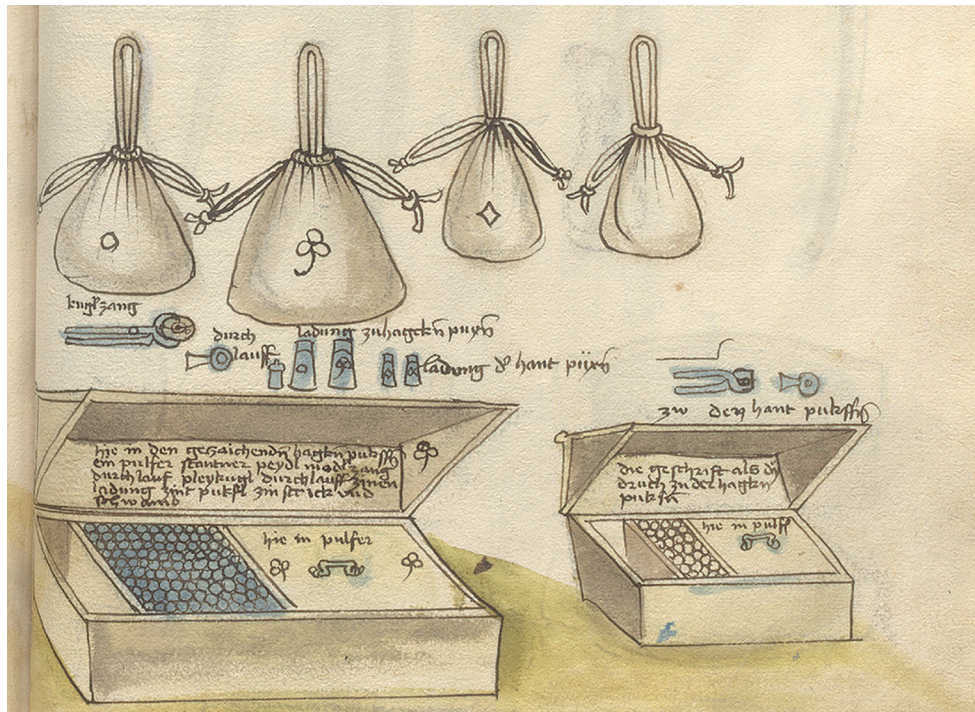 kugl zang
durch
lauff
ladung zu hagkñ puxñ
ladung d hant püxñ
zw den hant pukssñ
hie in den gezaichendñ hagkn pukssñ
ein pulfer peydl model zang
durchlauf pleykugl durchlauff zinen
ladung zint pukssl zin strick und
schwamb
hie in pulfer
die geschrift als dy
druch zu der hagkñ
pukssñ
hie in pulff